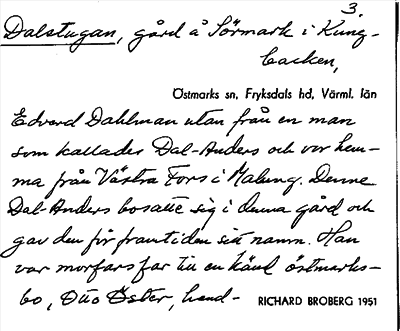 3.
Dalstugan, gård å Sörmark i Kung-
backen,
Östmarks sn, Fryksdals hd, Värml. län
Edvard Dahlman utan från en man
som kallades Dal-Anders och var hem-
ma från Västra Fors i Malung. Denne
Dal-Anders bosatte sig i denna gård och
gav den för framtiden sitt namn. Han
var morfars far till en känd östmarks-
bo, Otto Öster, hand-
RICHARD BROBERG 1951